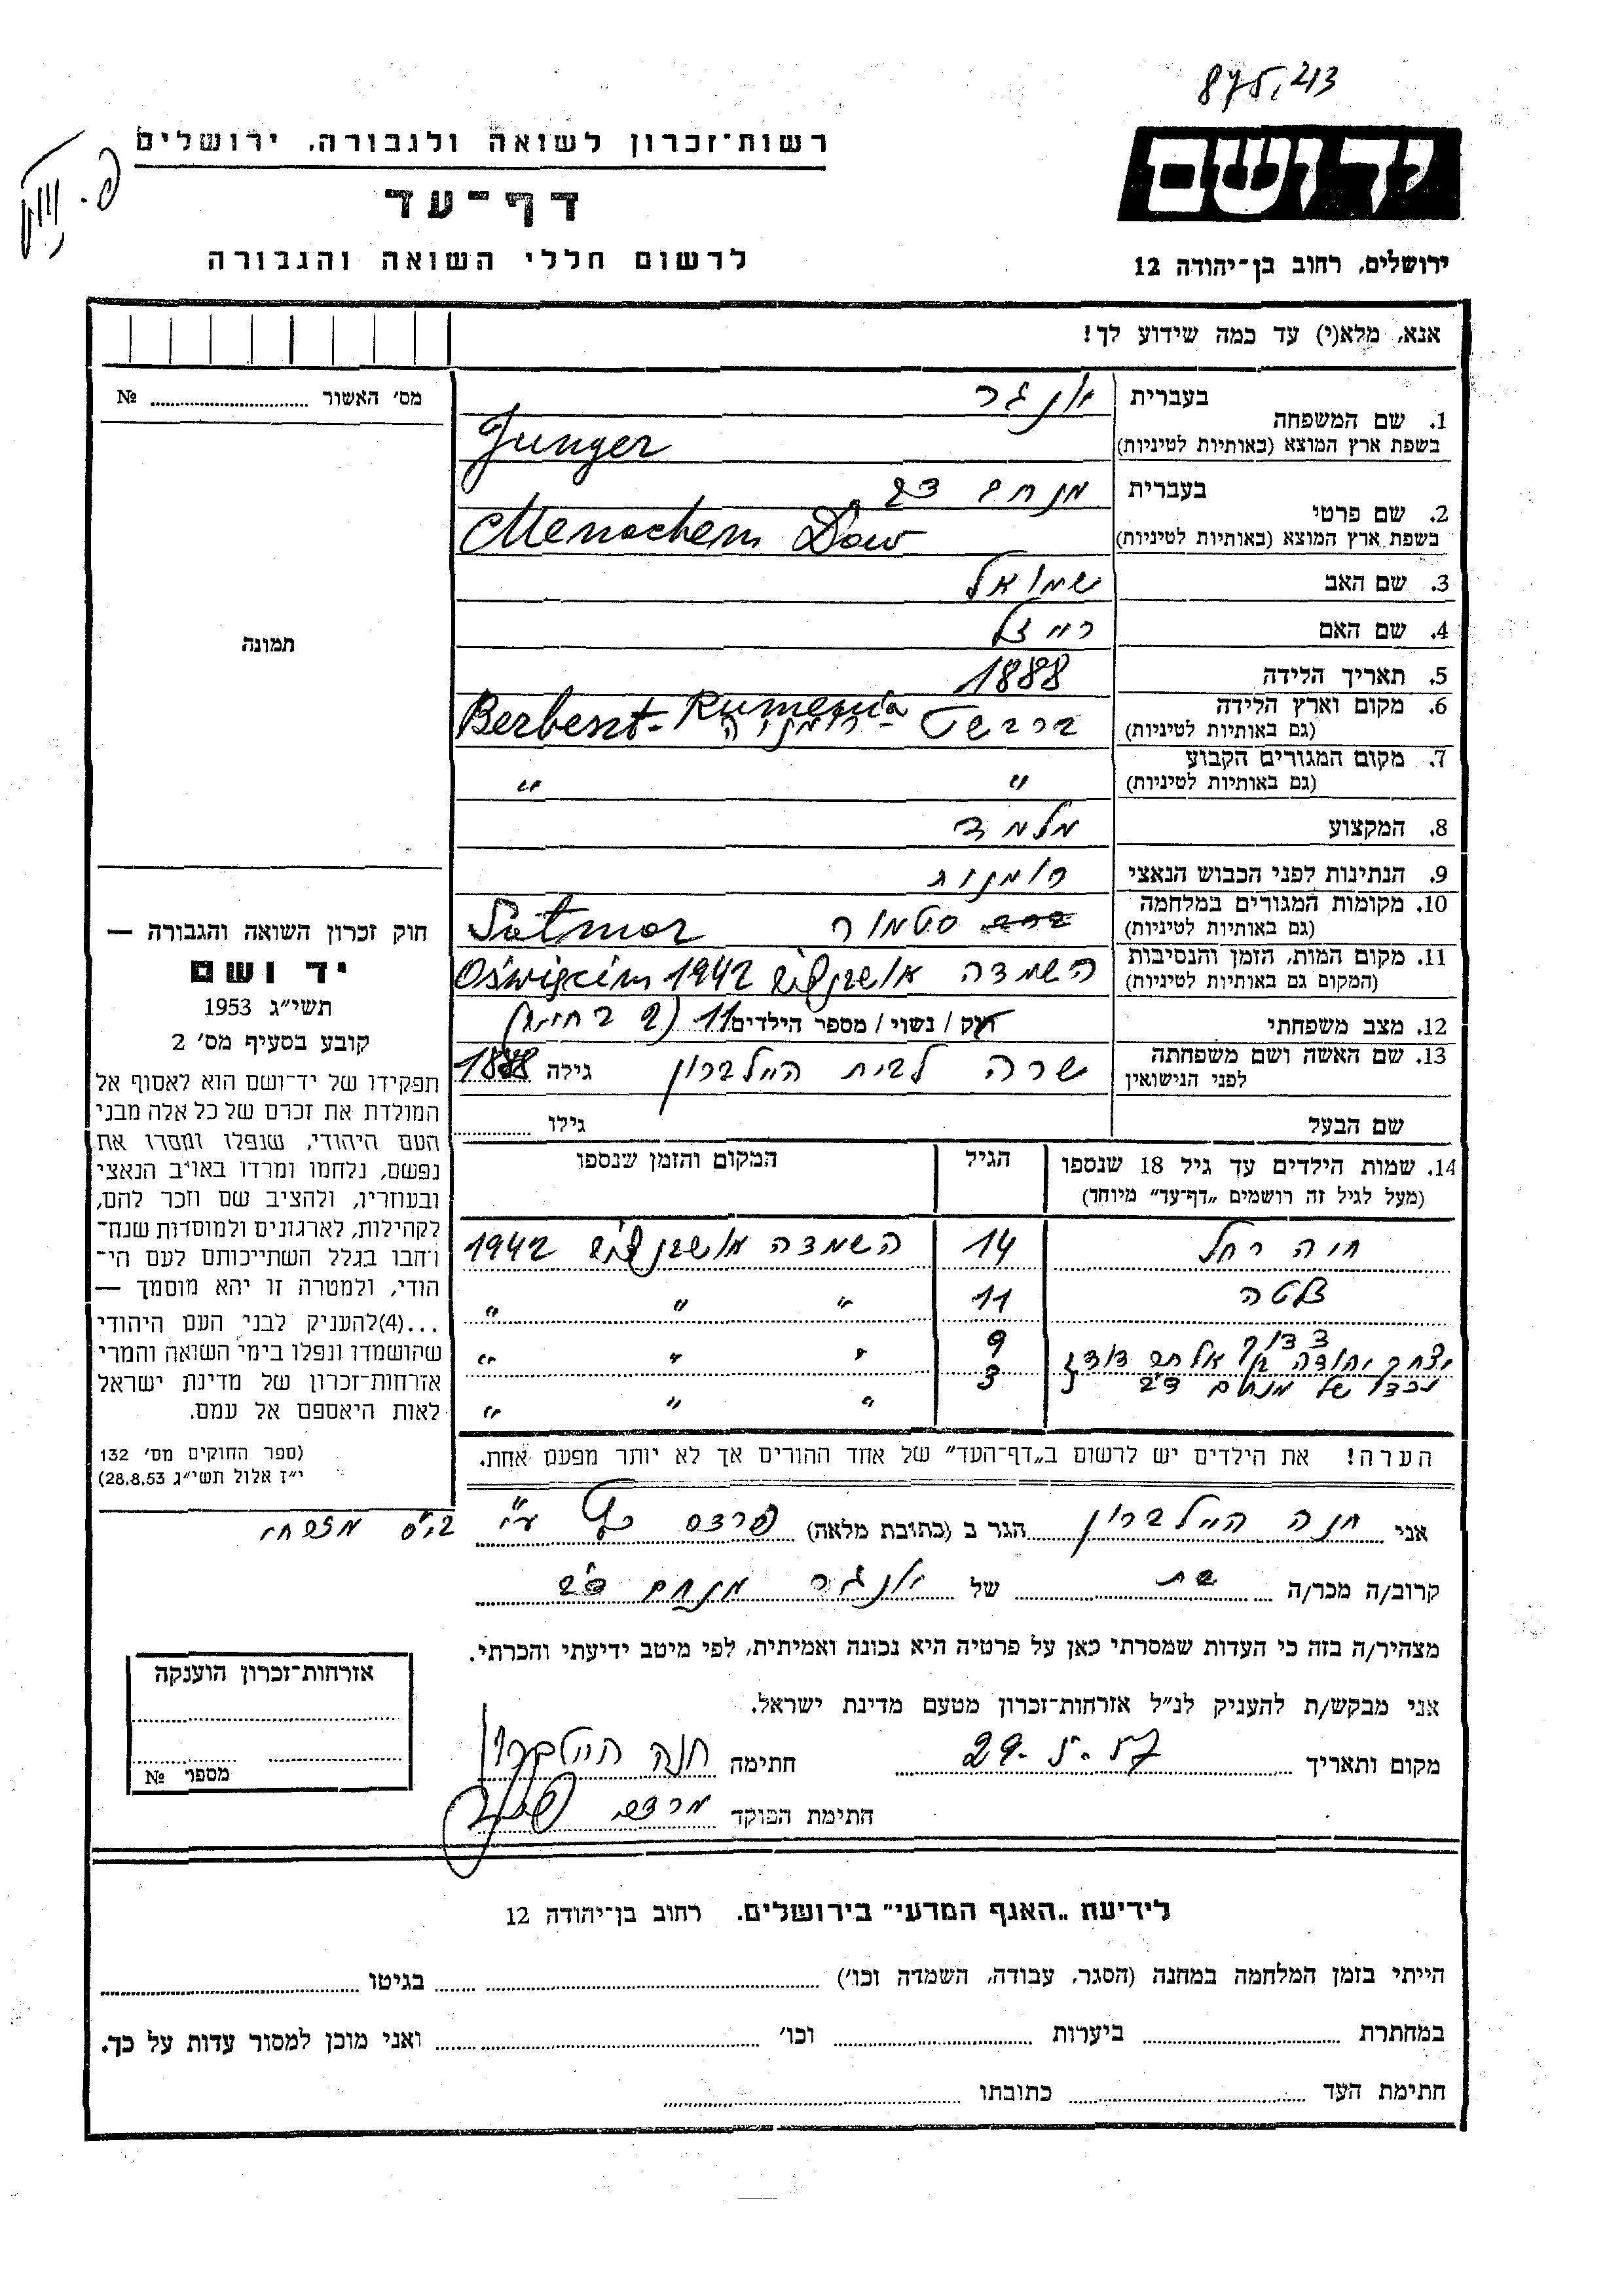 875,213
רשות־זכרון לשואה ולגבורה, ירושלים
דף־עד
לרשום חללי השואה והגבורה
יד ושם
ירושלים, רחוב בן־יהודה 12
אנא, מלא(י) עד כמה שידוע לך!
מס׳ האשור № 
תמונה
1. שם המשפחה
בעברית יונגר
בשפת ארץ המוצא (באותיות לטיניות) Junger
2. שם פרטי
בעברית מנחם דב
בשפת ארץ המוצא (באותיות לטיניות) Menachem Dow
3. שם האב שמואל
4. שם האם רייזל
5. תאריך הלידה 1888
6. מקום וארץ הלידה (גם באותיות לטיניות) ברבשט - רומניה Berbeszt - Rumenia
7. מקום המגורים הקבוע (גם באותיות לטיניות) " "
8. המקצוע מלמד
9. הנתינות לפני הכבוש הנאצי רומנית
10. מקומות המגורים במלחמה (גם באותיות לטיניות) סטמור Satmar
11. מקום המות, הזמן והנסיבות (המקום גם באותיות לטיניות) השמדה אושויץ 1942 Oświęcim
12. מצב משפחתי רוק / נשוי / מספר הילדים 11 (2 בחיים)
13. שם האשה ושם משפחתה לפני הנישואין שרה לבית היילברון גילה 1888
שם הבעל גילו
14. שמות הילדים עד גיל 18 שנספו (מעל לגיל זה רושמים „דף־עד” מיוחד) הגיל המקום והזמן שנספו
חיה רחל 14 השמדה אושויץ 1942
זלטה 11 " " "
9 " " "
יצחק יהודה בן אלתר דוד
נכדו של מנחם דב 3 " " "
הערה! את הילדים יש לרשום ב„דף־העד” של אחד ההורים אך לא יותר מפעם אחת.
חוק זכרון השואה והגבורה —
יד ושם
תשי״ג 1953
קובע בסעיף מס׳ 2
תפקידו של יד־ושם הוא לאסוף אל
המולדת את זכרם של כל אלה מבני
העם היהודי, שנפלו ומסרו את
נפשם, נלחמו ומרדו באויב הנאצי
ובעוזריו, ולהציב שם וזכר להם,
לקהילות, לארגונים ולמוסדות שנח־
רבו בגלל השתייכותם לעם הי־
הודי, ולמטרה זו יהא מוסמך —
...(4)להעניק לבני העם היהודי
שהושמדו ונפלו בימי השואה והמרי
אזרחות־זכרון של מדינת ישראל
לאות היאספם אל עמם.
(ספר החוקים מס׳ 132
י״ז אלול תשי״ג 28.8.53)
אני חנה היילברון הגר ב (כתובת מלאה) פרדס כץ ע״י בי״ס מזרחי
קרוב/ה מכר/ה בת של יונגר מנחם דב
מצהיר/ה בזה כי העדות שמסרתי כאן על פרטיה היא נכונה ואמיתית, לפי מיטב ידיעתי והכרתי.
אני מבקש/ת להעניק לנ״ל אזרחות־זכרון מטעם מדינת ישראל.
מקום ותאריך חתימה חנה היילברון
חתימת הפוקד
אזרחות־זכרון הוענקה
מספר №
לידיעת „האגף המדעי” בירושלים. רחוב בן־יהודה 12
הייתי בזמן המלחמה במחנה (הסגר, עבודה, השמדה וכו׳) בגיטו
במחתרת ביערות וכו׳ ואני מוכן למסור עדות על כך.
חתימת העד כתובתו